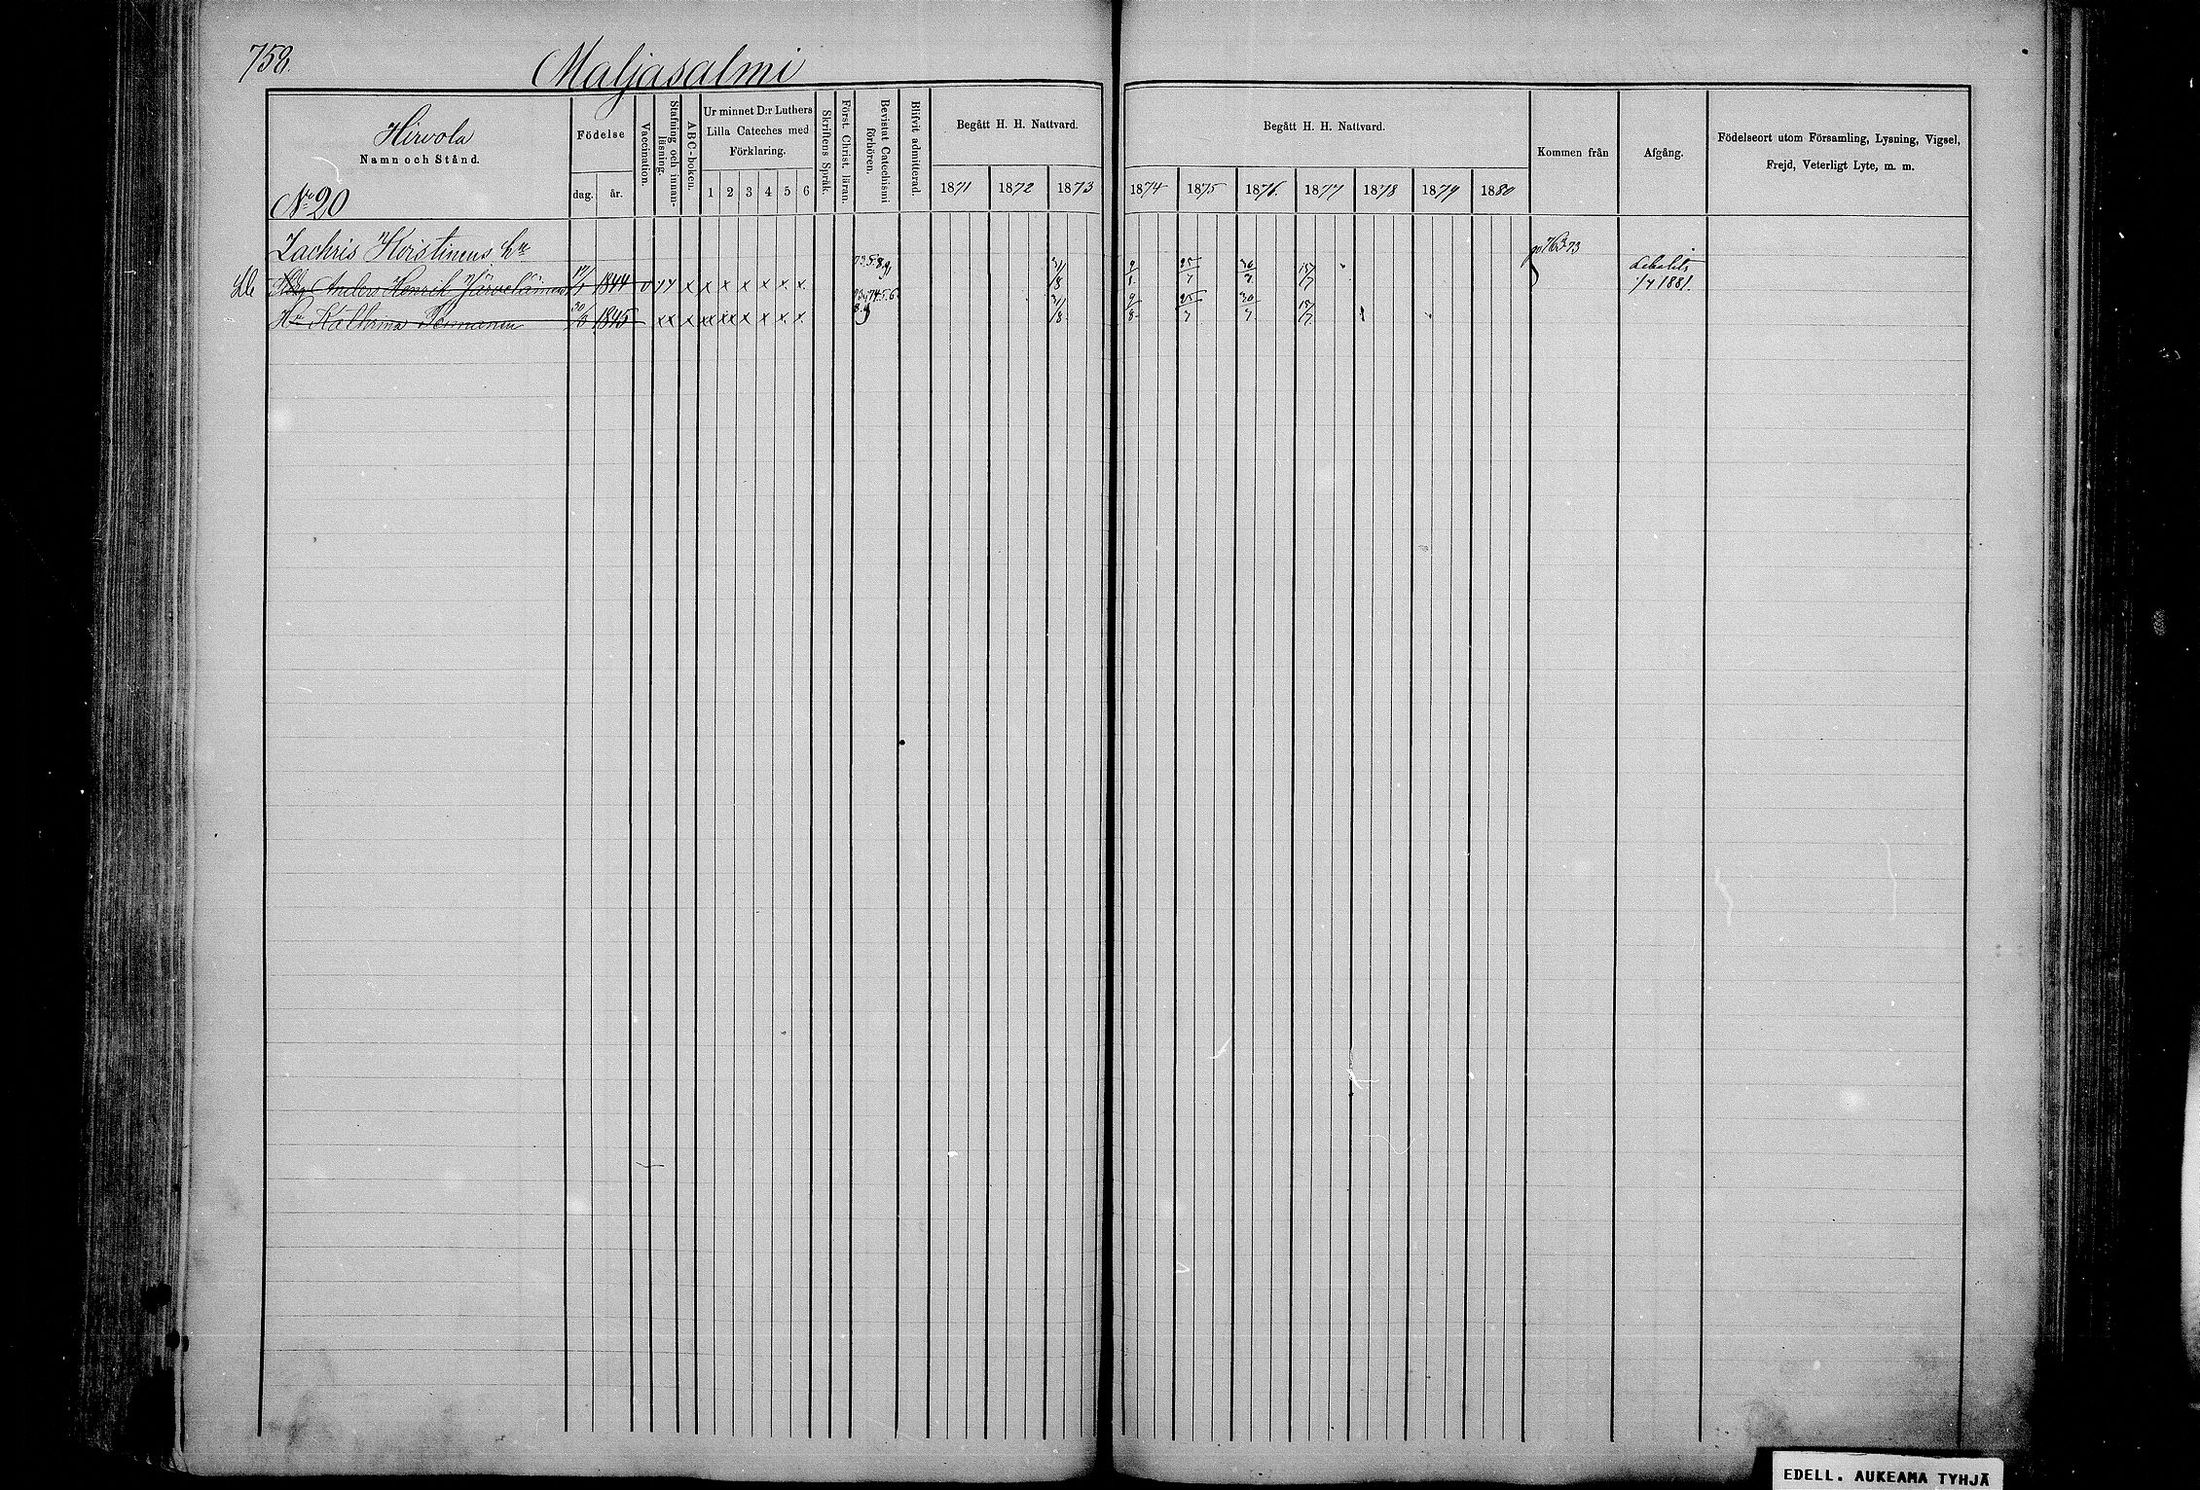 758.
Maljasalmi
Hirvola
Namn och Stånd.
No 20
Födelse
dag. år.
Vaccination.
Stafning och innan-
läsning.
ABC-boken.
Ur minnet D:r Luthers
Lilla Cateches med
Förklaring.
1 2 3 4 5 6
Skriftens Språk.
Först. Christ. läran.
Bevistat Catechismi
förhören.
Blifvit admitterad.
Begått H. H. Nattvard.
1871 1872 1873
Begått H. H. Nattvard.
1874 1875 1876 1877 1878 1879 1880
Kommen från
Afgång.
Födelseort utom Församling, Lysning, Vigsel,
Frejd, Veterligt Lyte, m. m.
Zachris Koistinens
Anders Henrik 1844 v x x x x x x x x 31/8 9/8 25/7 30/7 15/7
1/4 1881.
Hu Kathrina 30 1845 xx x xx xx x x x x 31/8 9/8 25/7 30/7 15/7
EDELL. AUKEAMA TYHJÄ